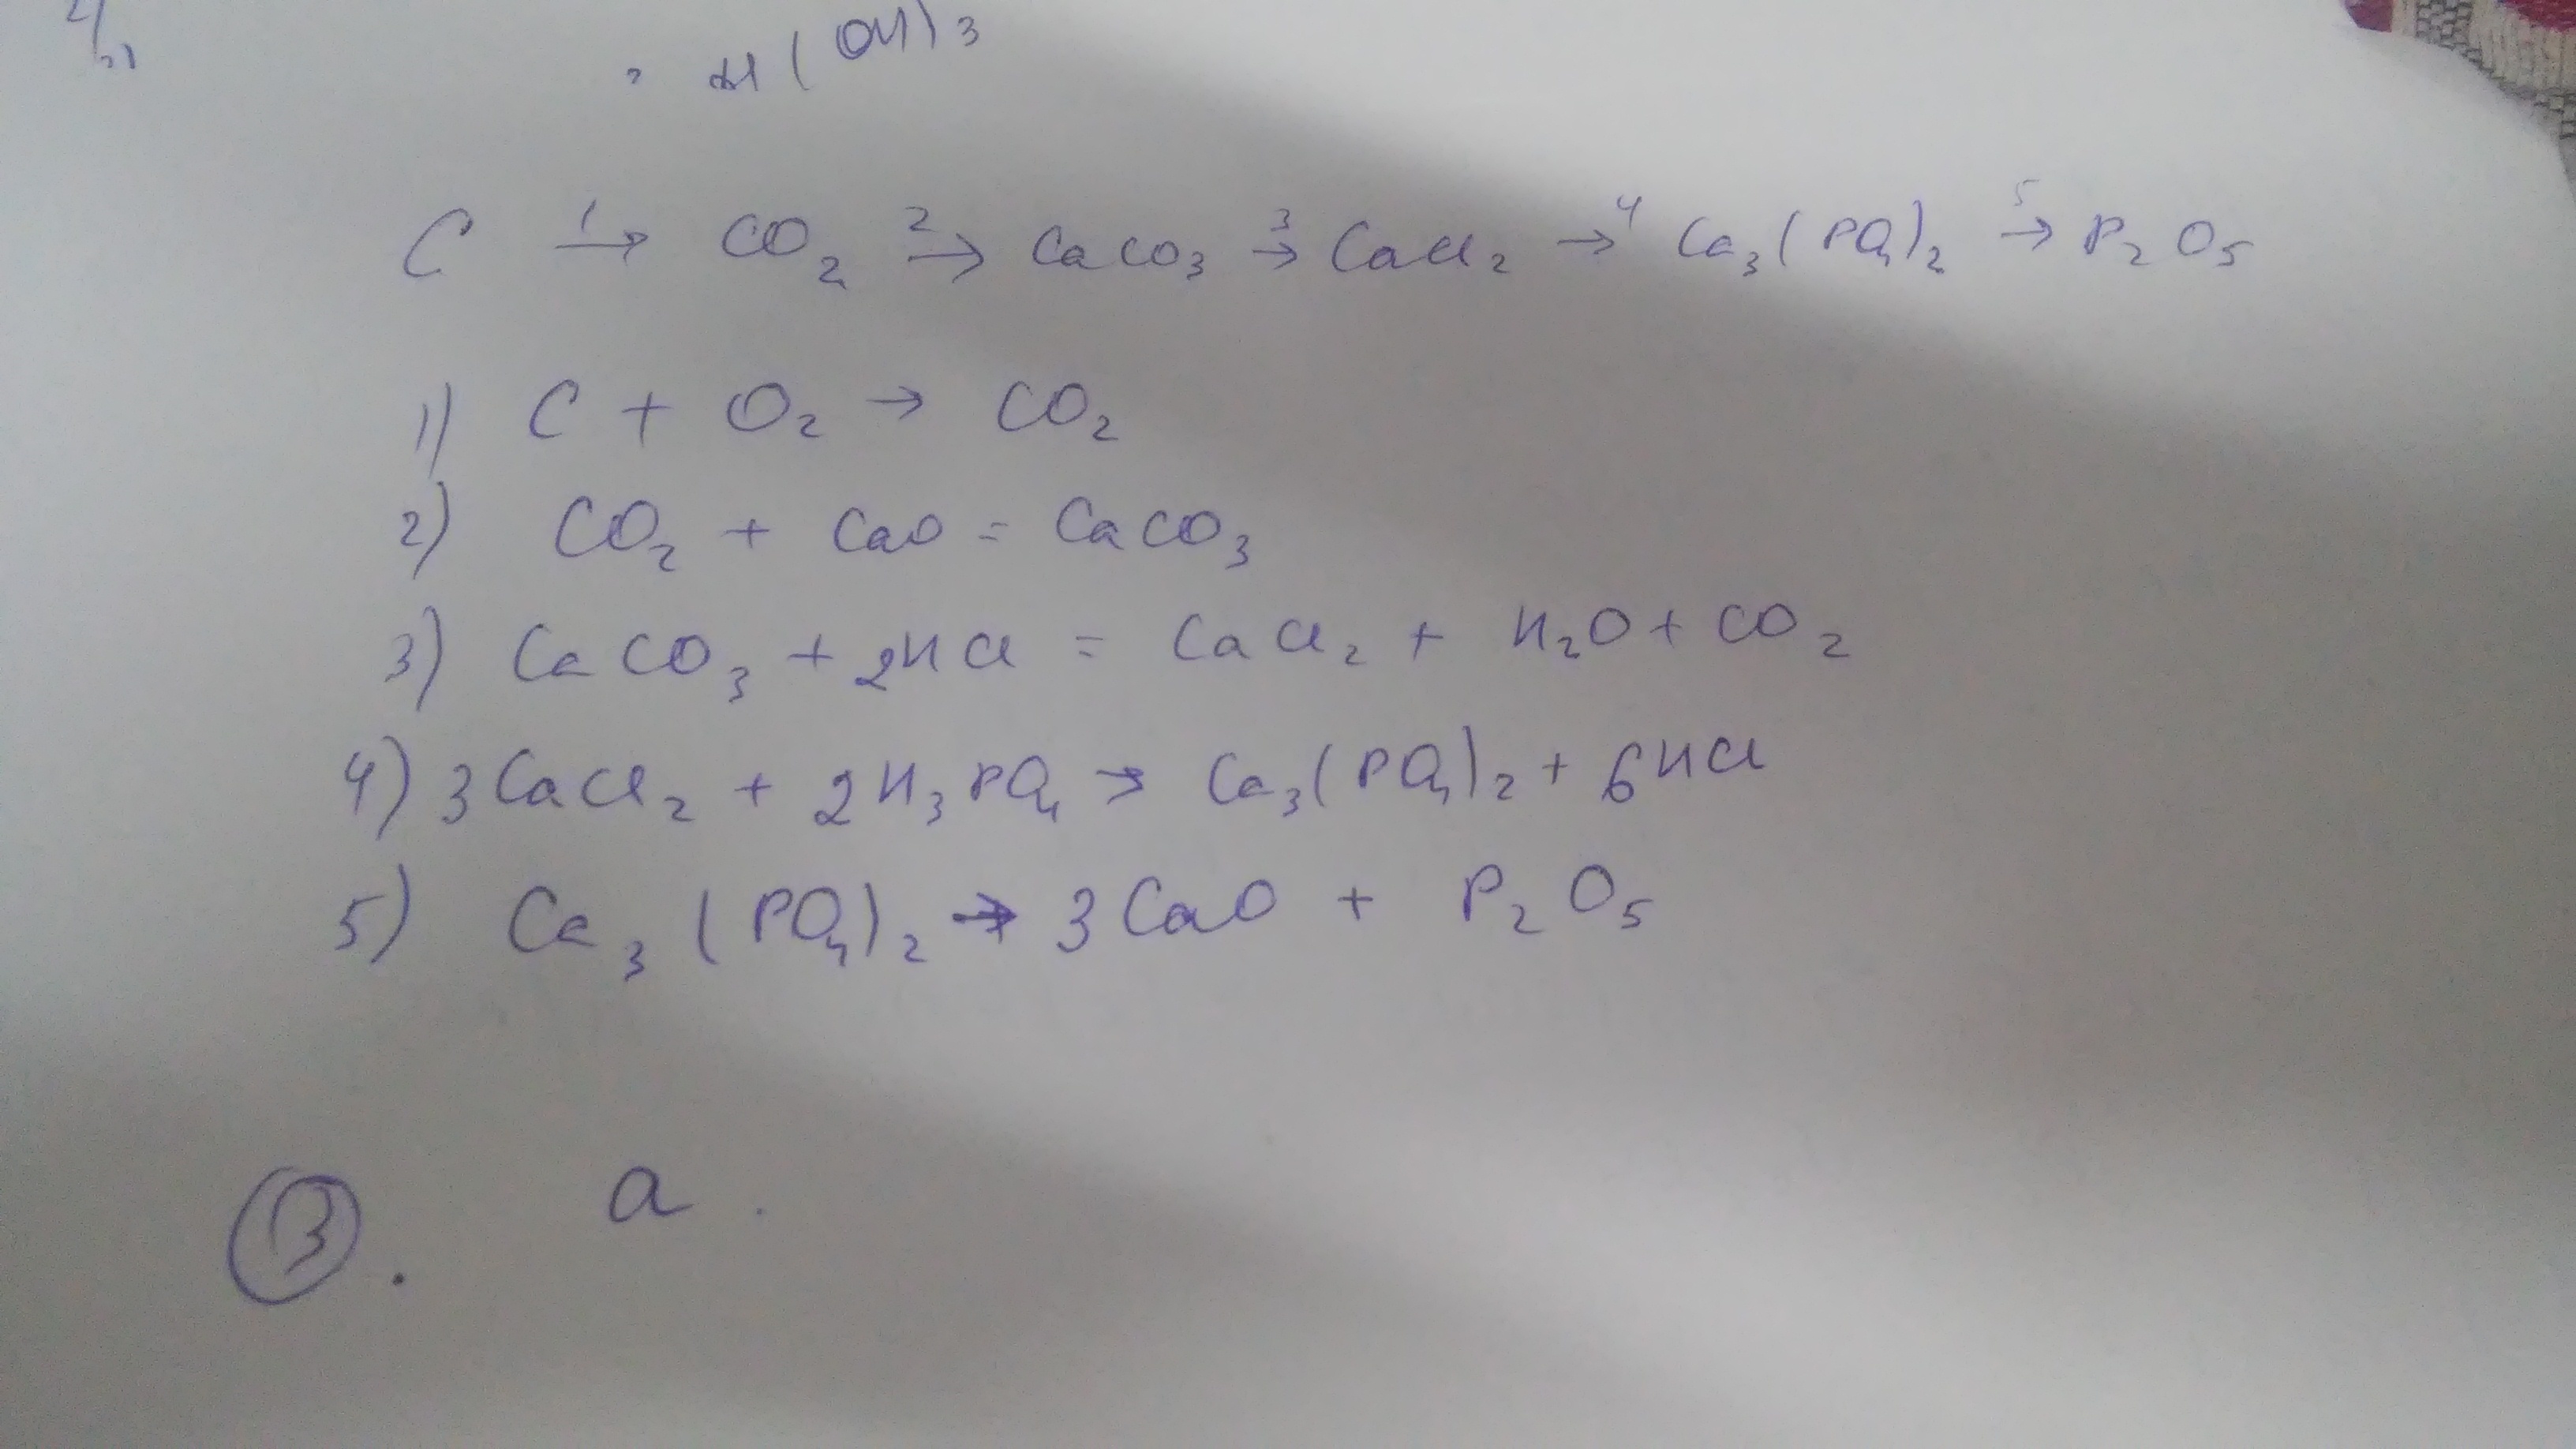 Al(OH)3
C →1 CO2 →2 CaCO3 →3 CaCl2 →4 Ca3(PO4)2 →5 P2O5
1) C + O2 → CO2
2) CO2 + CaO = CaCO3
3) CaCO3 + 2HCl = CaCl2 + H2O + CO2
4) 3CaCl2 + 2H3PO4 → Ca3(PO4)2 + 6HCl
5) Ca3(PO4)2 → 3CaO + P2O5
3. a.